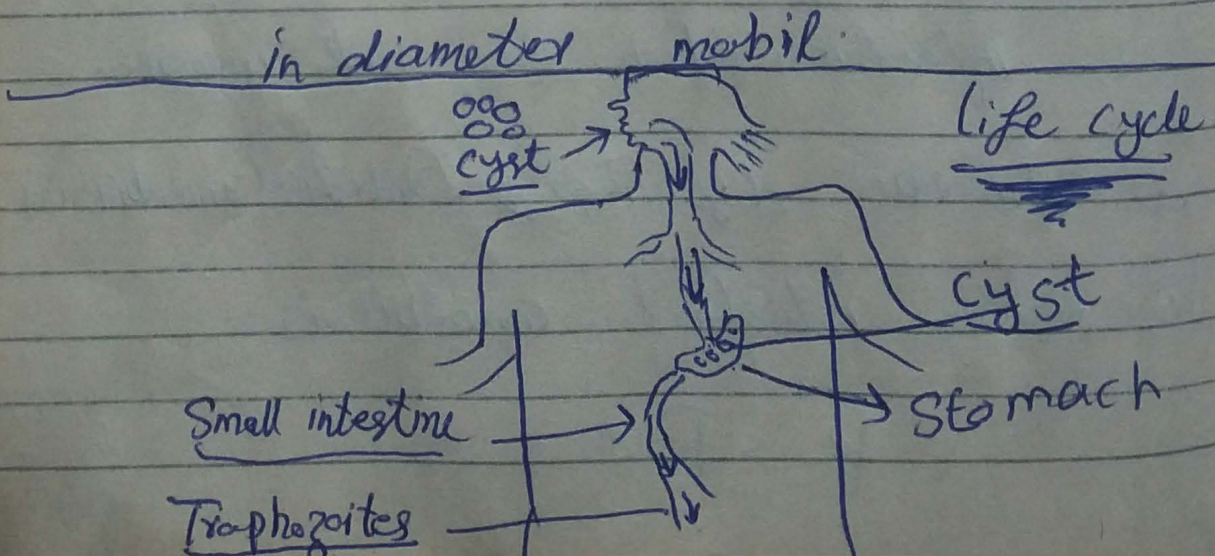 in diameter mobil.
life cycle
cyst
cyst
Stomach
Small intestine
Trophozoites